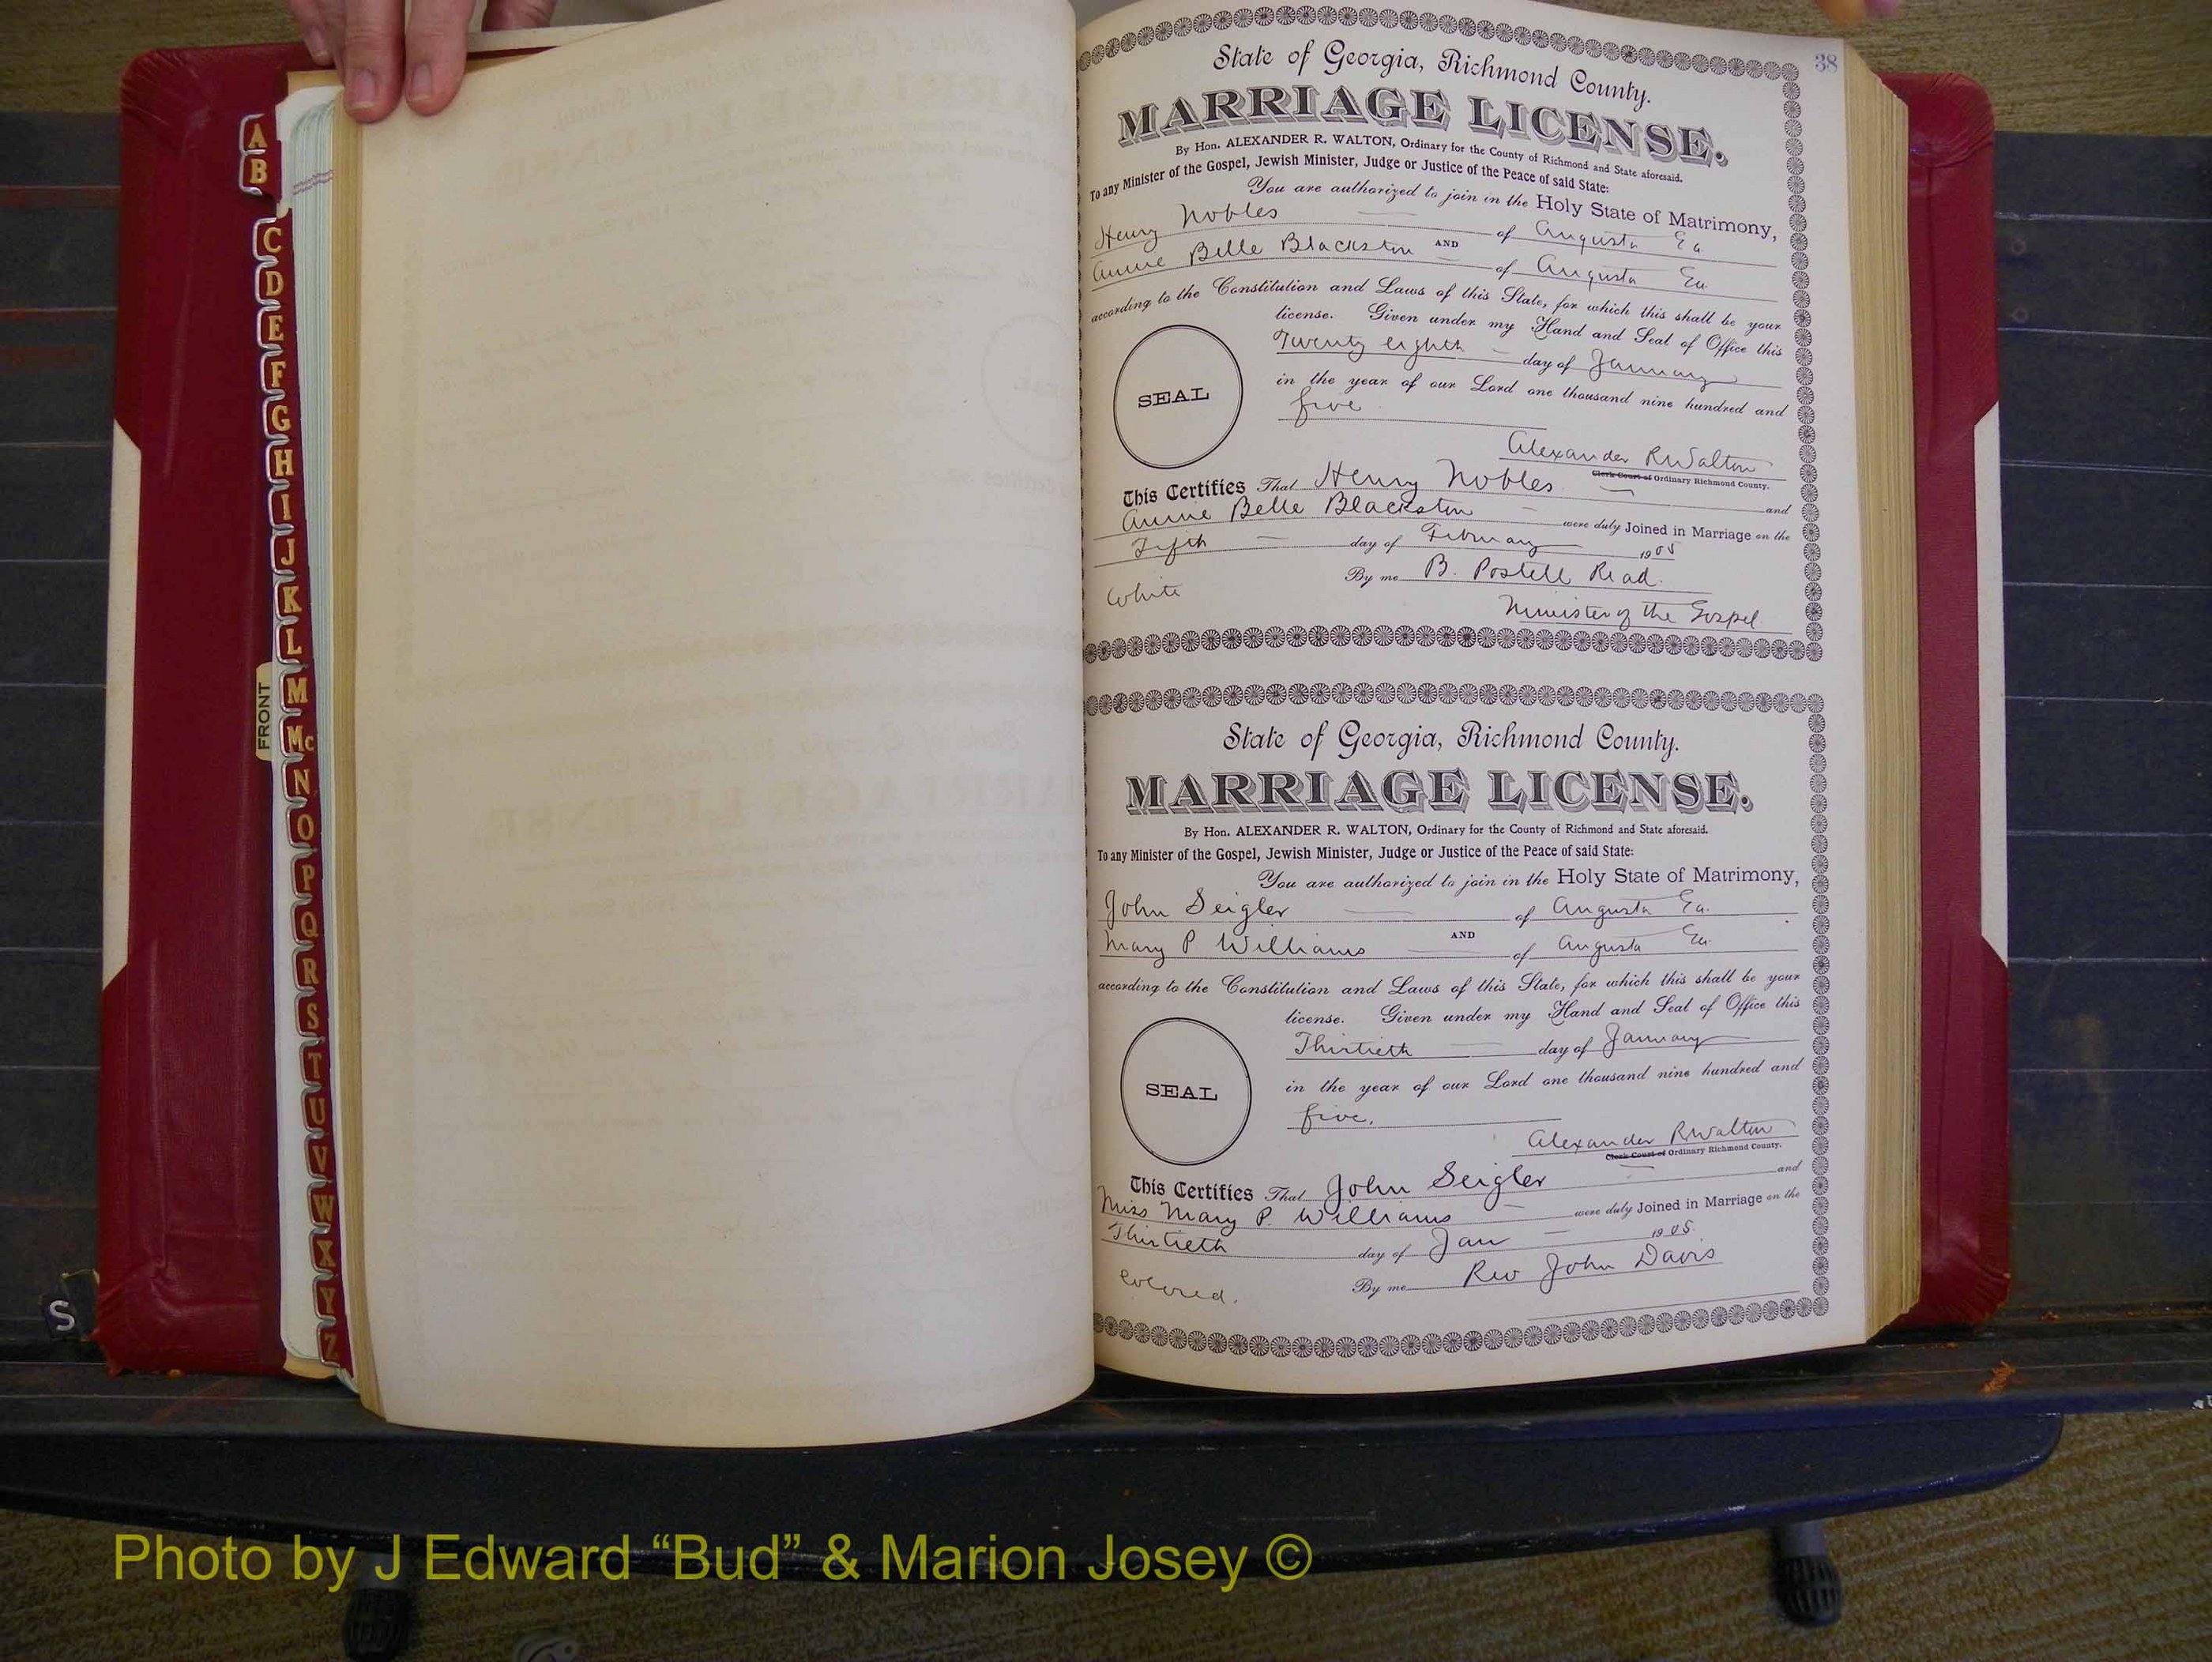 A
B
C
D
E
F
G
H
I
J
K
L
M
Mc
N
O
P
Q
R
S
T
U
V
W
X
Y
Z
FRONT
S
38
State of Georgia, Richmond County.
MARRIAGE LICENSE.
By Hon. ALEXANDER R. WALTON, Ordinary for the County of Richmond and State aforesaid.
To any Minister of the Gospel, Jewish Minister, Judge or Justice of the Peace of said State:
You are authorized to join in the Holy State of Matrimony,
Henry Nobles of Augusta Ga
AND
Annie Belle Blackston of Augusta Ga.
according to the Constitution and Laws of this State, for which this shall be your
license. Given under my Hand and Seal of Office this
Twenty eighth day of January
in the year of our Lord one thousand nine hundred and
five
SEAL
Alexander R Walton
Clerk Court of Ordinary Richmond County.
This Certifies That Henry Nobles and
Annie Belle Blackston were duly Joined in Marriage on the
Fifth day of February 1905
By me B. Postell Read.
White
Minister of the Gospel.
State of Georgia, Richmond County.
MARRIAGE LICENSE.
By Hon. ALEXANDER R. WALTON, Ordinary for the County of Richmond and State aforesaid.
To any Minister of the Gospel, Jewish Minister, Judge or Justice of the Peace of said State:
You are authorized to join in the Holy State of Matrimony,
John Seigler of Augusta Ga.
AND
Mary P Williams of Augusta Ga.
according to the Constitution and Laws of this State, for which this shall be your
license. Given under my Hand and Seal of Office this
Thirtieth day of January
in the year of our Lord one thousand nine hundred and
five.
SEAL
Alexander R Walton
Clerk Court of Ordinary Richmond County.
This Certifies That John Seigler and
Miss Mary P. Williams were duly Joined in Marriage on the
Thirtieth day of Jan 1905.
By me Rev John Davis
Colored.
Photo by J Edward “Bud” & Marion Josey ©